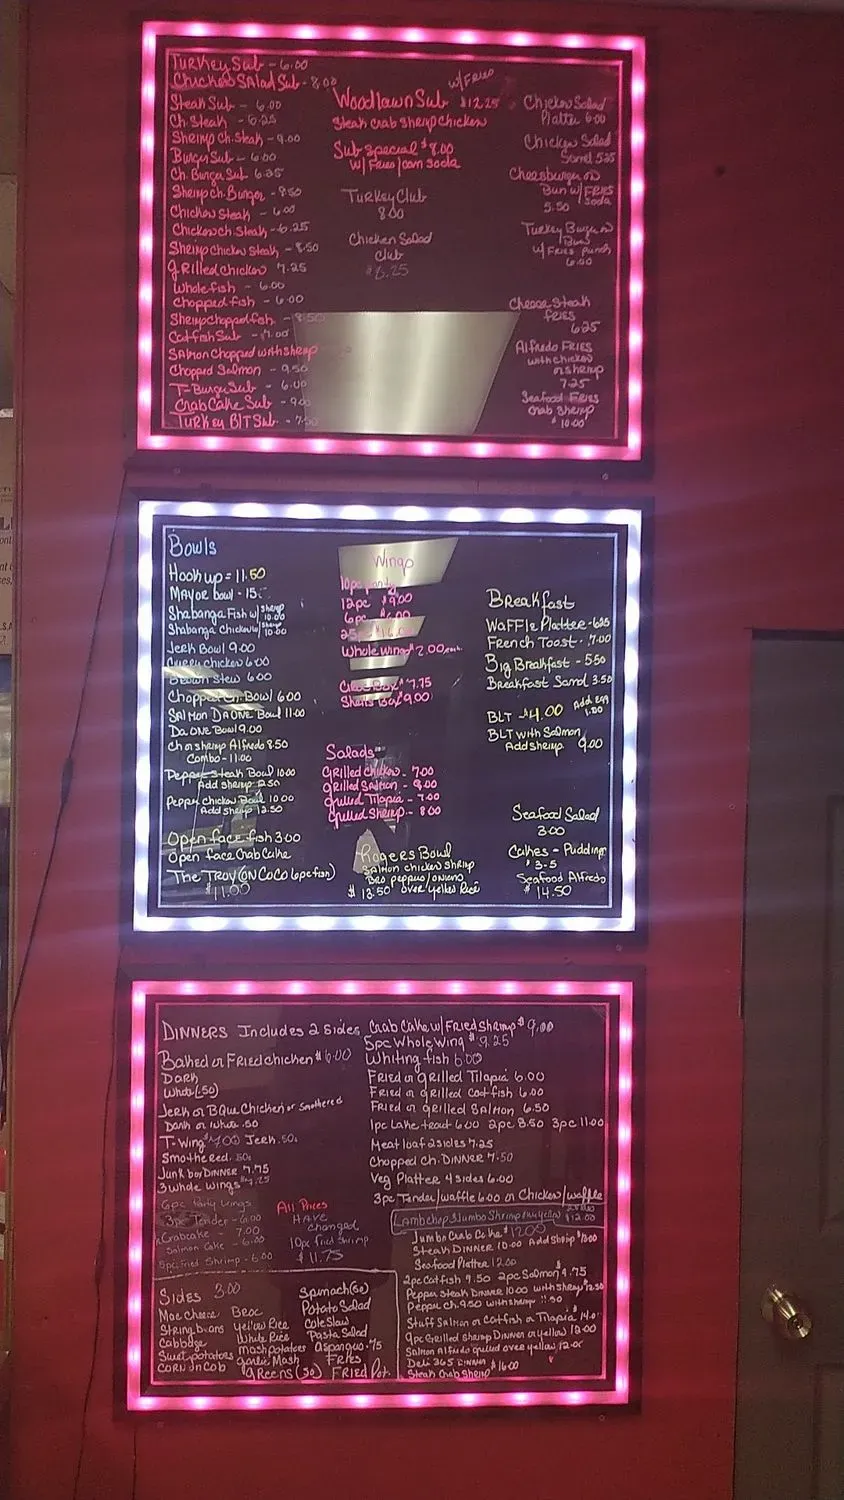 Turkey Sub - 6.00
Chicken Salad Sub - 8.00
Steak Sub - 6.00
Ch. Steak - 6.25
Shrimp Ch. Steak - 9.00
Burger Sub - 6.00
Ch. Burger Sub 6.25
Shrimp ch. Burger - 8.50
Chicken Steak - 6.00
Chicken ch. Steak - 6.25
Shrimp chicken Steak - 8.50
grilled chicken 7.25
whole fish - 6.00
chopped fish - 6.00
Shrimp chopped fish - 8.50
Catfish Sub - 7.00
Salmon Chopped with shrimp
Chopped Salmon - 9.50
T-Burger Sub - 6.00
Crab Cake Sub - 9.00
Turkey BLT Sub - 7.50
w/ Fries
Woodlawn Sub $12.25
Steak crab shrimp chicken
Sub Special $8.00
w/ Fries/can soda
Turkey Club
8.00
Chicken Salad
Club
$8.25
Chicken Salad
Platter 6.00
Chicken Salad
Sand 5.25
Cheesburger on
Bun w/ FRIES
Soda
5.50
Turkey Burger on
Bun
w/ Fries punch
6.50
Cheese Steak
fries
6.25
Alfredo FRIES
with chicken
or shrimp
7.25
Seafood Fries
Crab shrimp
$10.00
Bowls
Hook up = 11.50
Mayor bowl - 15.
Shabanga Fish w/ Shrimp 10.00
Shabanga Chicken w/ Shrimp 10.00
Jerk Bowl 9.00
Curry chicken 6.00
Brown Stew 6.00
Chopped Ch. Bowl 6.00
Salmon Da ONE Bowl 11.00
Da ONE Bowl 9.00
Ch or shrimp Alfredo 8.50
Combo - 11.00
Pepper Steak Bowl 10.00
Add shrimp 2.50
Pepper chicken Bowl 10.00
Add shrimp 12.50
Open face fish 3.00
Open face Crab Cake
The Troy (on coco 6pc fish)
$11.00
Wings
10pc party
12pc $9.00
6pc $6.00
Whole wings $2.00 each
$7.75
9.00
Salads
grilled chicken - 7.00
grilled Salmon - 8.00
grilled Tilapia - 7.00
grilled shrimp - 8.00
Rogers Bowl
Salmon chicken shrimp
Bro peppers/onions
$13.50 over yellow Rice
Breakfast
Waffle Platter - 6.25
French Toast - 7.00
Big Breakfast - 5.50
Breakfast Sand 3.50
BLT - $4.00 Add egg 1.00
BLT with Salmon
Add shrimp 9.00
Seafood Salad
3.00
Cakes - Pudding
$3.5
Seafood Alfredo
$14.50
DINNERS Includes 2 Sides
Baked or Fried chicken $6.00
Dark
White (.50)
Jerk or BQue Chicken or Smothered
Dark or White .50
T-Wing $7.00 Jerk .50
Smothered .50
Junk boy DINNER 7.75
3 whole wings $7.25
6pc Party wings
3pc Tender - 6.00
Crabcake - 7.00
Salmon Cake - 6.00
5pc Fried Shrimp - 6.00
All Prices
HAVE
changed
10pc fried shrimp
$11.75
Crab Cake w/ Fried Shrimp $9.00
5pc Whole Wing $9.25
Whiting fish 6.00
Fried or grilled Tilapia 6.00
Fried or grilled Catfish 6.00
Fried or grilled Salmon 6.50
1pc Lake trout 6.00 2pc 8.50 3pc 11.00
Meatloaf 2 sides 7.25
Chopped Ch. DINNER 7.50
Veg Platter 4 sides 6.00
3pc Tender/waffle 6.00 or Chicken/waffle
Lambchop Jumbo Shrimp $12.00
Jumbo Crab Cake $12.00
Steak DINNER 10.00 Add Shrimp $13.00
Seafood Platter 12.00
2pc Catfish 9.50 2pc Salmon 9.75
Pepper Steak Dinner 10.00 with shrimp $12.50
Pepper ch. 9.50 with shrimp 11.50
Stuff Salmon or Catfish or Tilapia $14.00
9pc Grilled shrimp Dinner or yellow 12.00
Salmon Alfredo grilled over yellow 12.00
Deli 365 Dinner $16.00
Steak Crab Shrimp
Sides 3.00
Mac cheese
String beans
Cabbage
Sweet potatoes
Corn on Cob
Broc
yellow Rice
White Rice
mash potatoes
garlic Mash
greens (.50)
Spinach (.50)
Potato Salad
Coleslaw
Pasta Salad
asparagus .75
FRIES
FRIED Pot.